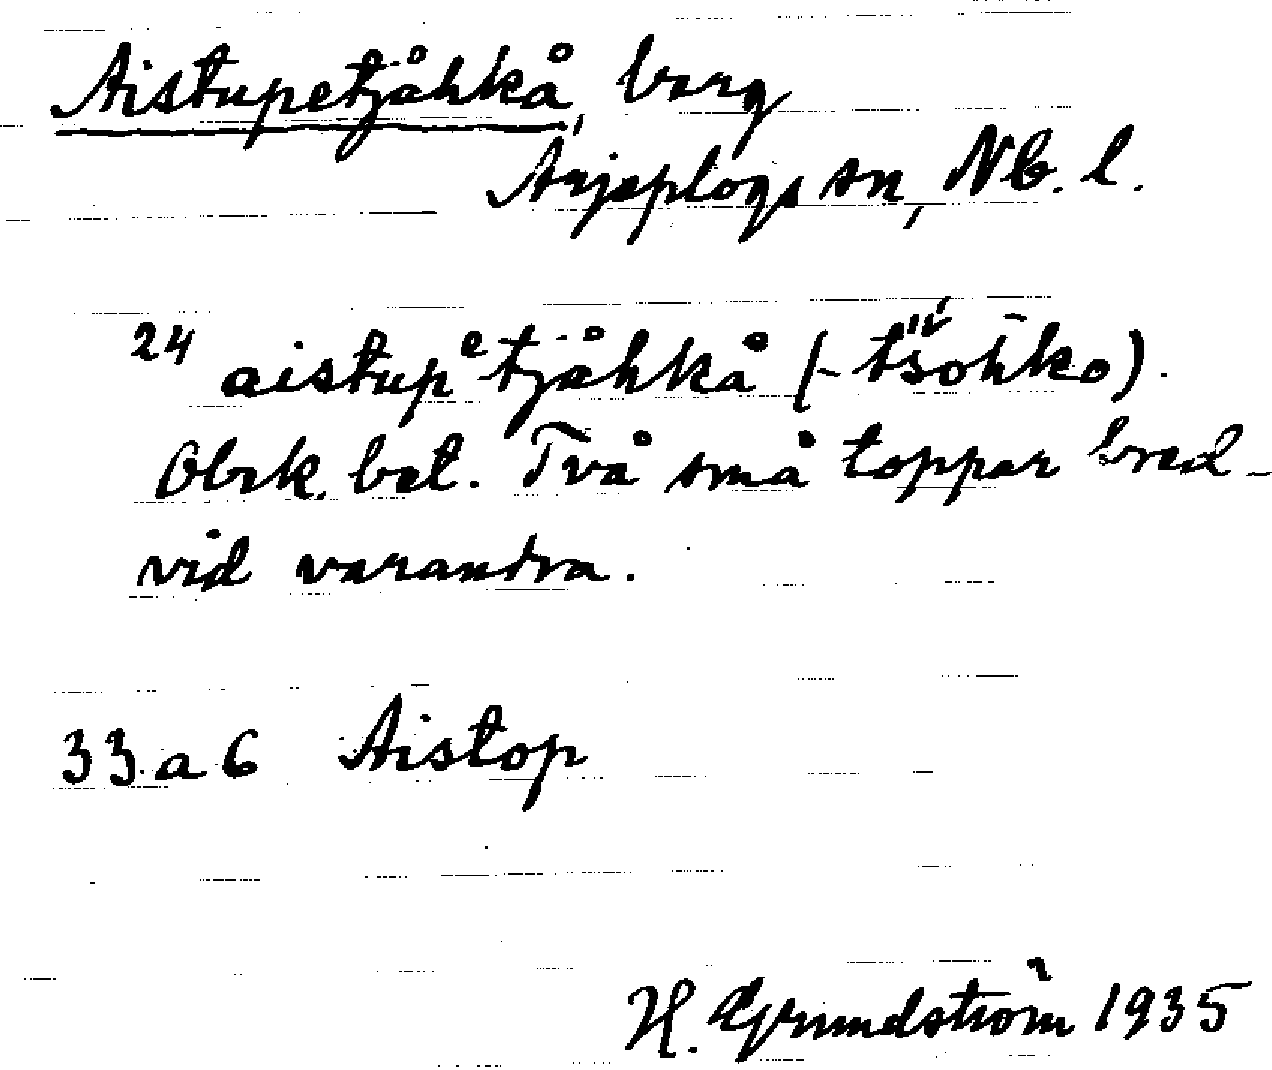 Aistupetjåhkå, berg
Arjeplogs sn, Nb. l.
24 aistupᵉtjåhkå (-tš́ōhko).
Obrk. bet. Två små toppar bred-
vid varandra.
33 a 6 Aistop
H. Grundström 1935